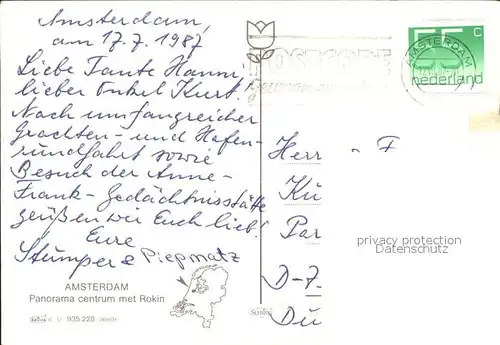 Amsterdam,
am 17.7.1987
Liebe Tante Hanni,
lieber Onkel Kurt!
Nach umfangreicher
Grachten- und Hafen-
rundfahrt sowie
Besuch der Anne-
Frank-Gedächtnisstätte
grüßen wir Euch lieb!
Eure
Stumper & Piepmatz
AMSTERDAM
Panorama centrum met Rokin
935.228
POSTCODE
AMSTERDAM
55 c
nederland
Herr F
Kü
Par
D-
Dü
privacy protection
Datenschutz